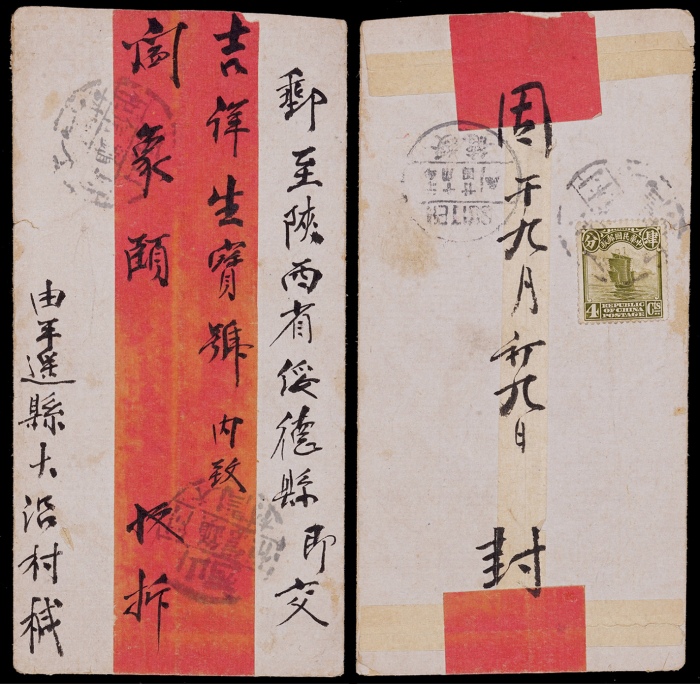 郵至陝西省綏德縣即交
吉祥生寶號 內致
象頤 收拆
由平遙縣大沿村椷
固
于九月初九日
封
SUITEH
綏德
肆 中華民國郵政 分
4 REPUBLIC OF CHINA POSTAGE Cts